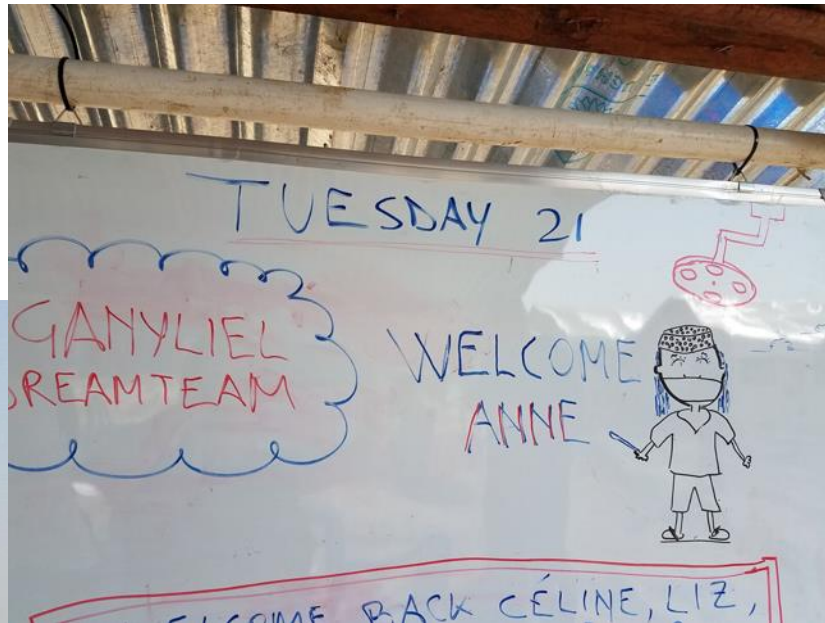 TUESDAY 21
GANYLIEL
DREAMTEAM
WELCOME
ANNE
WELCOME BACK CÉLINE, LIZ,